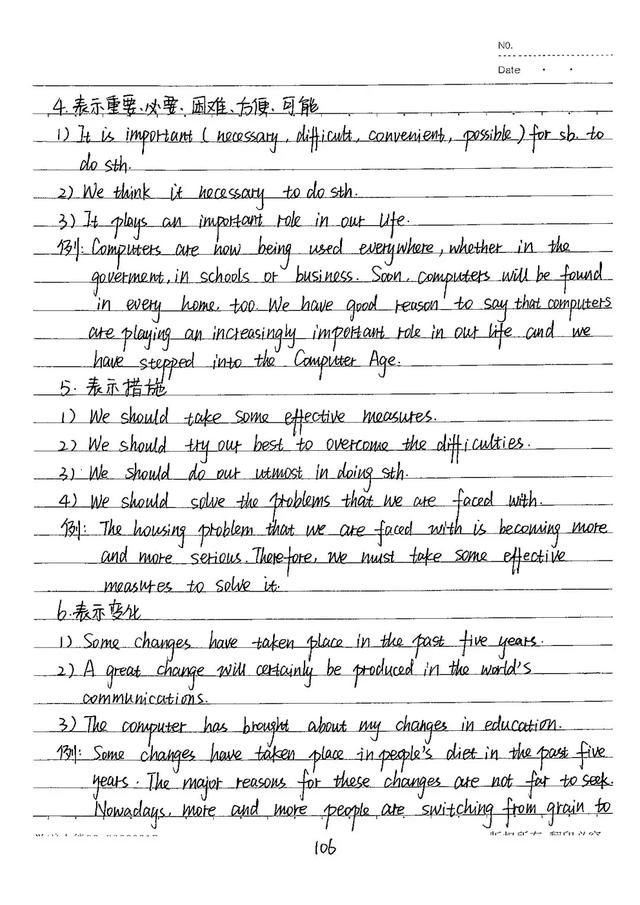 No.
Date · ·
4.表示重要、必要、困难、方便、可能
1) It is important ( necessary, difficult, convenient, possible ) for sb. to
do sth.
2) We think it necessary to do sth.
3) It plays an important role in our life.
例: Computers are now being used everywhere, whether in the
goverment, in schools or business. Soon, computers will be found
in every home, too. We have good reason to say that computers
are playing an increasingly important role in our life and we
have stepped into the Computer Age.
5. 表示措施
1) We should take some effective measures.
2) We should try our best to overcome the difficulties.
3) We should do our utmost in doing sth.
4) We should solve the problems that we are faced with.
例: The housing problem that we are faced with is becoming more
and more serious. Therefore, we must take some effective
measures to solve it.
6.表示变化
1) Some changes have taken place in the past five years.
2) A great change will certainly be produced in the world's
communications.
3) The computer has brought about my changes in education.
例: Some changes have taken place in people's diet in the past five
years. The major reasons for these changes are not far to seek.
Nowadays, more and more people are switching from grain to
106